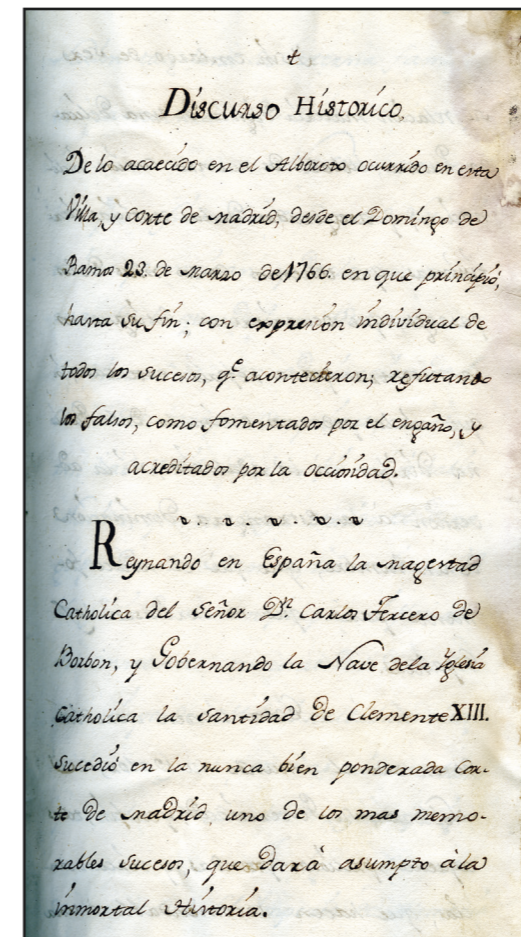 †
Discurso Historico,
De lo acaecido en el Alboroto ocurrido en esta
Villa, y Corte de Madrid, desde el Domingo de
Ramos 23. de Marzo de 1766. en que principió,
hasta su fin; con expresion individual de
todos los sucesos, q.e acontecieron; refutando
los falsos, como fomentados por el engaño, y
acreditados por la occiosidad.
Reynando en España la Magestad
Catholica del Señor D.n Carlos Tercero de
Borbon, y Gobernando la Nave dela Yglesia
Catholica la Santidad de Clemente XIII.
sucedió en la nunca bien ponderada Cor-
te de Madrid, uno de los mas memo-
rables sucesos, que dará asumpto à la
inmortal Historia.